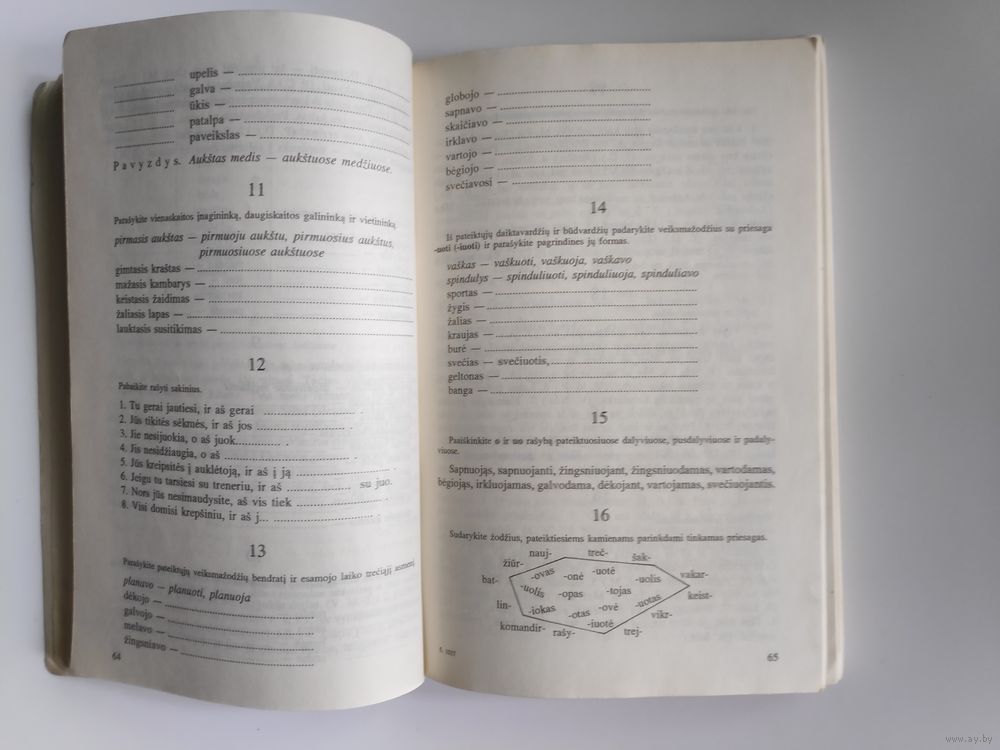 upelis —
galva —
ūkis —
patalpa —
paveikslas —
Pavyzdys. Aukštas medis — aukštuose medžiuose.
11
Parašykite vienaskaitos įnagininką, daugiskaitos galininką ir vietininką.
pirmasis aukštas — pirmuoju aukštu, pirmuosius aukštus,
pirmuosiuose aukštuose
gimtasis kraštas —
mažasis kambarys —
keistasis žaidimas —
žaliasis lapas —
lauktasis susitikimas —
12
Pabaikite rašyti sakinius.
1. Tu gerai jautiesi, ir aš gerai .
2. Jūs tikitės sėkmės, ir aš jos .
3. Jie nesijuokia, o aš juok... .
4. Jis nesidžiaugia, o aš .
5. Jūs kreipsitės į auklėtoją, ir aš į ją .
6. Jeigu tu tarsiesi su treneriu, ir aš su juo.
7. Nors jūs nesimaudysite, aš vis tiek .
8. Visi domisi krepšiniu, ir aš j... .
13
Parašykite pateiktųjų veiksmažodžių bendratį ir esamojo laiko trečiąjį asmenį.
planavo — planuoti, planuoja
dėkojo —
galvojo —
melavo —
žingsniavo —
64
globojo —
sapnavo —
skaičiavo —
irklavo —
vartojo —
bėgiojo —
svečiavosi —
14
Iš pateiktųjų daiktavardžių ir būdvardžių padarykite veiksmažodžius su priesaga
-uoti (-iuoti) ir parašykite pagrindines jų formas.
vaškas — vaškuoti, vaškuoja, vaškavo
spindulys — spinduliuoti, spinduliuoja, spinduliavo
sportas —
žygis —
žalias —
kraujas —
burė —
svečias — svečiuotis,
geltonas —
banga —
15
Paaiškinkite o ir uo rašybą pateiktuosiuose dalyviuose, pusdalyviuose ir padaly-
viuose.
Sapnuojąs, sapnuojanti, žingsniuojant, žingsniuodamas, vartodamas,
bėgiojąs, irkluojamas, galvodama, dėkojant, vartojamas, svečiuojantis.
16
Sudarykite žodžius, pateiktiesiems kamienams parinkdami tinkamas priesagas.
nauj- treč- šak-
žiūr- -ovas -onė -uotė -uolis vakar-
bat- -uolis -opas -tojas -uotas keist-
lin- -iokas -otas -ovė vikr-
komandir- rašy- -iuotė trej-
65
www.ay.by